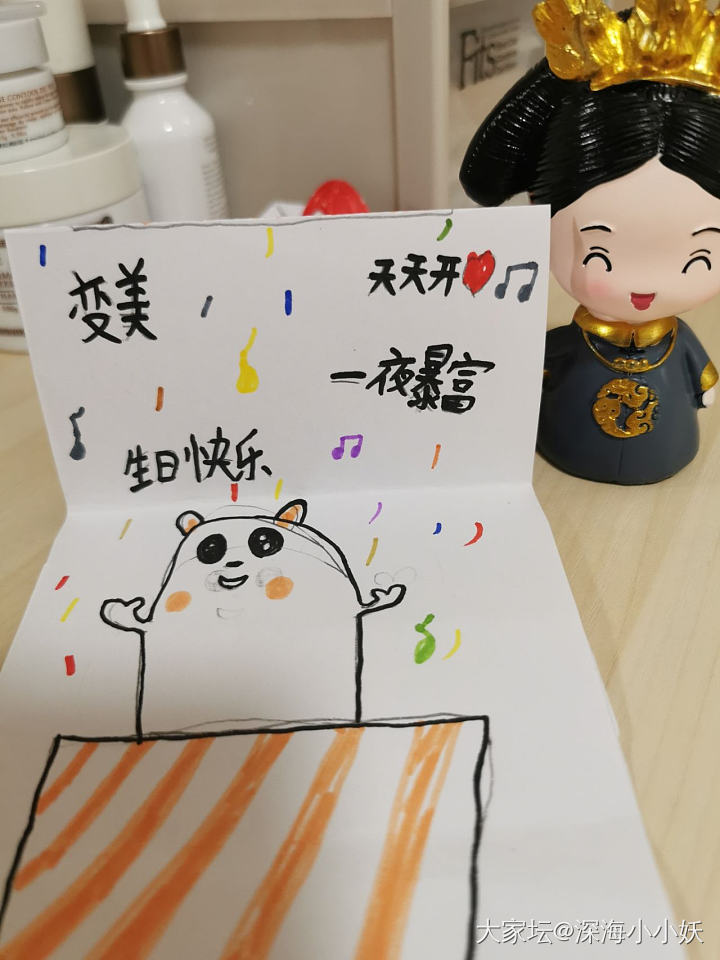 变美
天天开❤️
一夜暴富
生日快乐
Fits
大家坛@深海小小妖